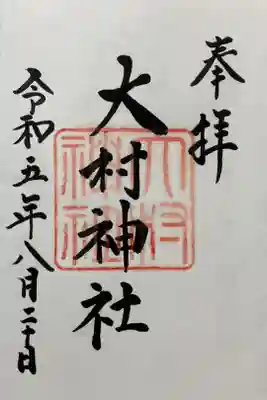 奉拝
大村神社
令和五年八月二十日
大村神社